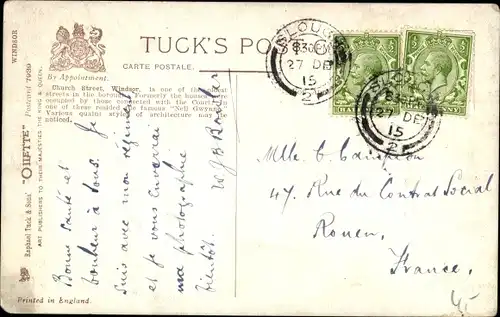 TUCK'S PO
CARTE POSTALE.
By Appointment.
WINDSOR
Postcard 7989
"OILETTE"
Raphael Tuck & Sons'
ART PUBLISHERS TO THEIR MAJESTIES THE KING & QUEEN.
Church Street, Windsor, is one of the
streets in the borough. Formerly the houses
occupied by those connected with the Court. In
one of these resided the famous "Nell Gwynne."
Various quaint styles of architecture may be
noticed.
SLOUGH
8.30PM
27 DE
15
2
SLOUGH
27 DE
15
2
Bonne santé et
bonheur à tous. Je
suis avec mon regiment
et je vous enverrai
ma photographie
bientôt.
Mlle C. Campion
47, Rue du Contrat Social
Rouen,
France.
Printed in England.